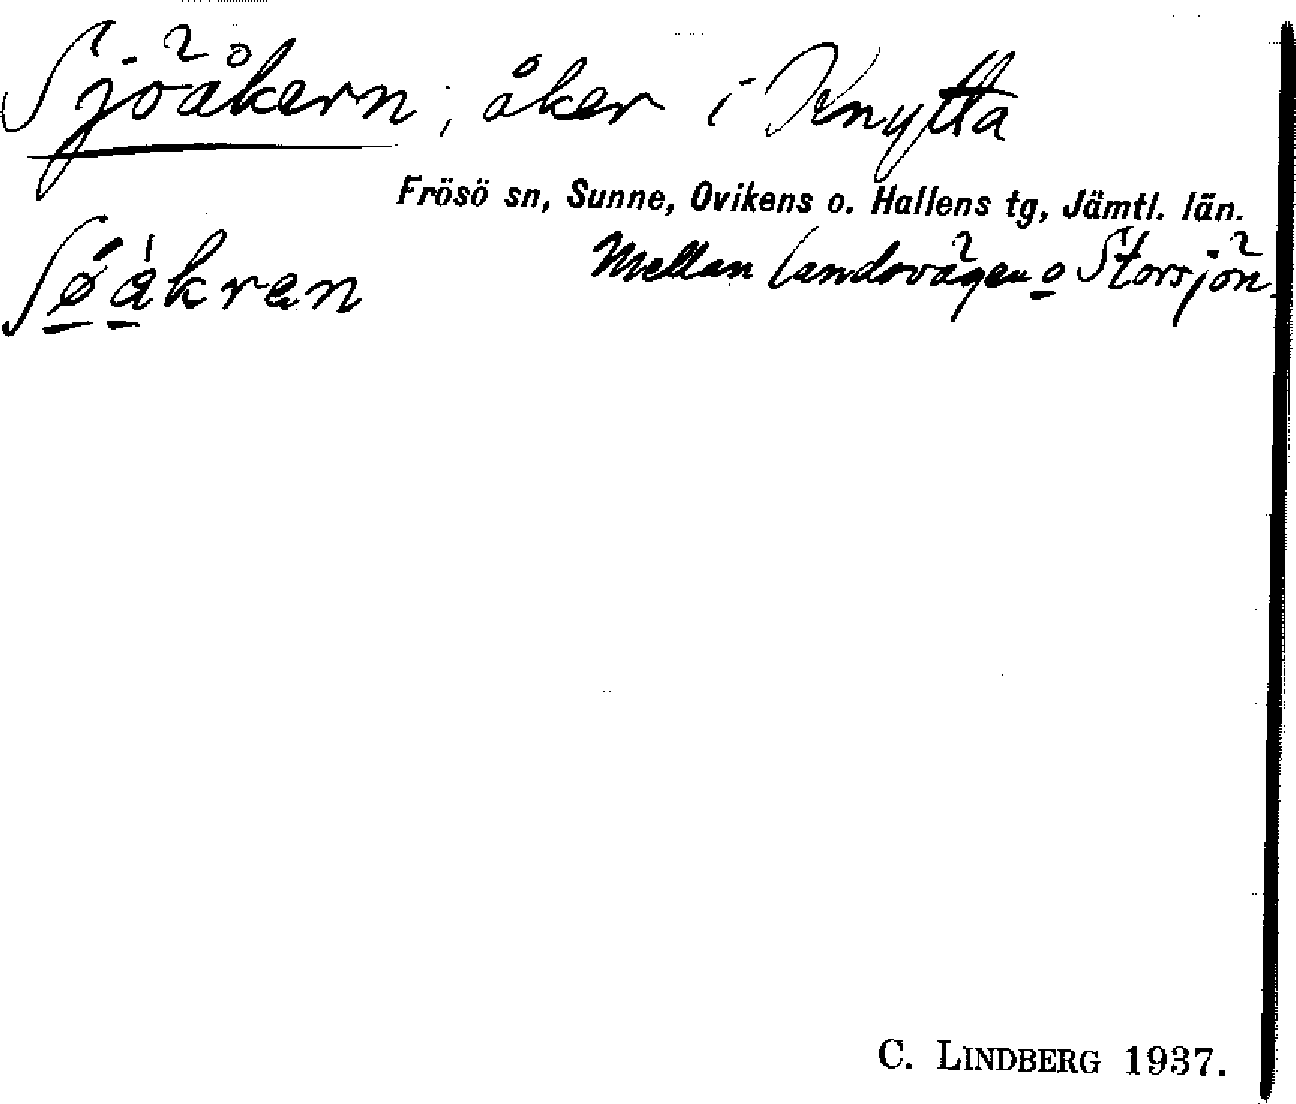 Sjöåkern, åker i Knytta
Frösö sn, Sunne, Ovikens o. Hallens tg, Jämtl. län.
Mellan landsvägen o Storsjön.
ʃø̱̀a̱̍kren
C. LINDBERG 1937.